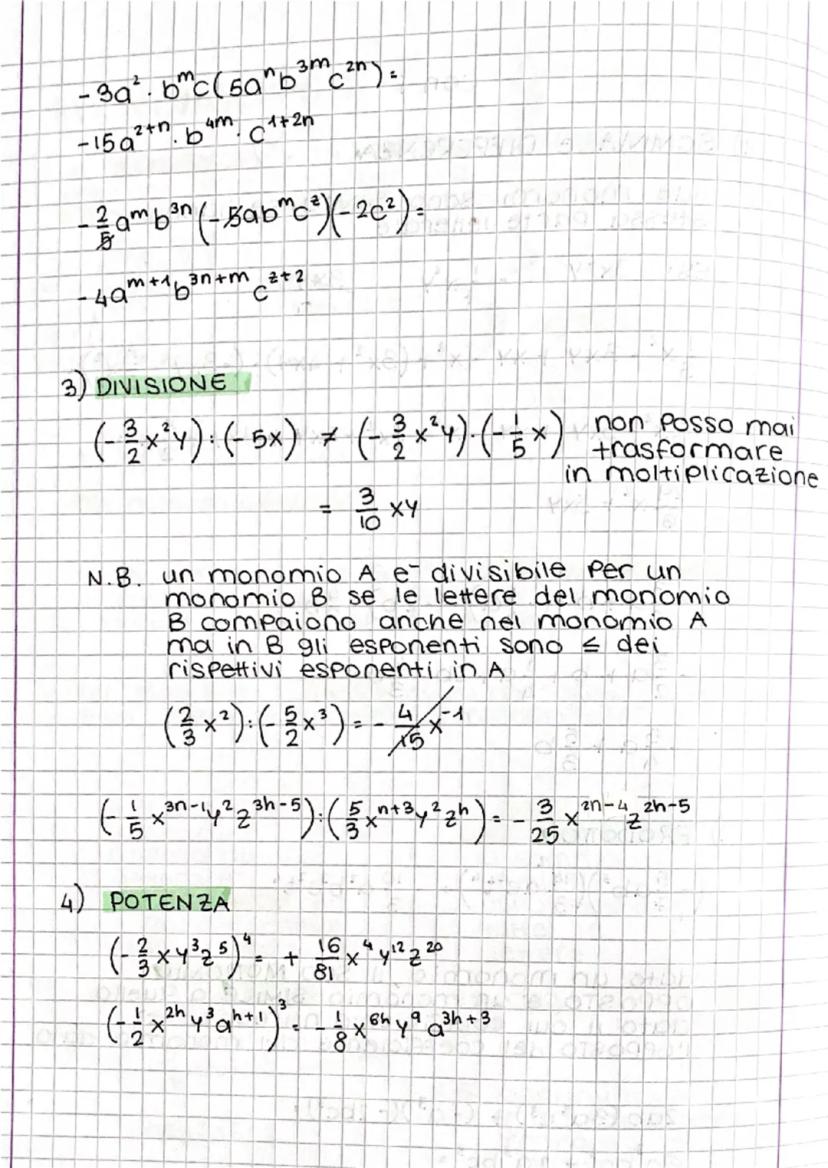 -3a² · bᵐc(5aⁿb³ᵐc²ⁿ) =
-15a²⁺ⁿ · b⁴ᵐ · c¹⁺²ⁿ
-2/5 aᵐb³ⁿ(-5abᵐcᶻ)(-2c²) =
-4aᵐ⁺¹b³ⁿ⁺ᵐ cᶻ⁺²
3) DIVISIONE
(-3/2 x²y) : (-5x) ≠ (-3/2 x²y) · (-1/5 x) non posso mai
trasformare
in moltiplicazione
= 3/10 xy
N.B. un monomio A e⁻ divisibile per un
monomio B se le lettere del monomio
B compaiono anche nel monomio A
ma in B gli esponenti sono ≤ dei
rispettivi esponenti in A
(2/3 x²) : (-5/2 x³) = -4/15 x⁻¹
(-1/5 x³ⁿ⁻¹y²z³ʰ⁻⁵) : (5/3 xⁿ⁺³y²zʰ) = -3/25 x²ⁿ⁻⁴z²ʰ⁻⁵
4) POTENZA
(-2/3 xy³z⁵)⁴ = + 16/81 x⁴y¹²z²⁰
(-1/2 x²ʰy³aʰ⁺¹)³ = -1/8 x⁶ʰy⁹a³ʰ⁺³